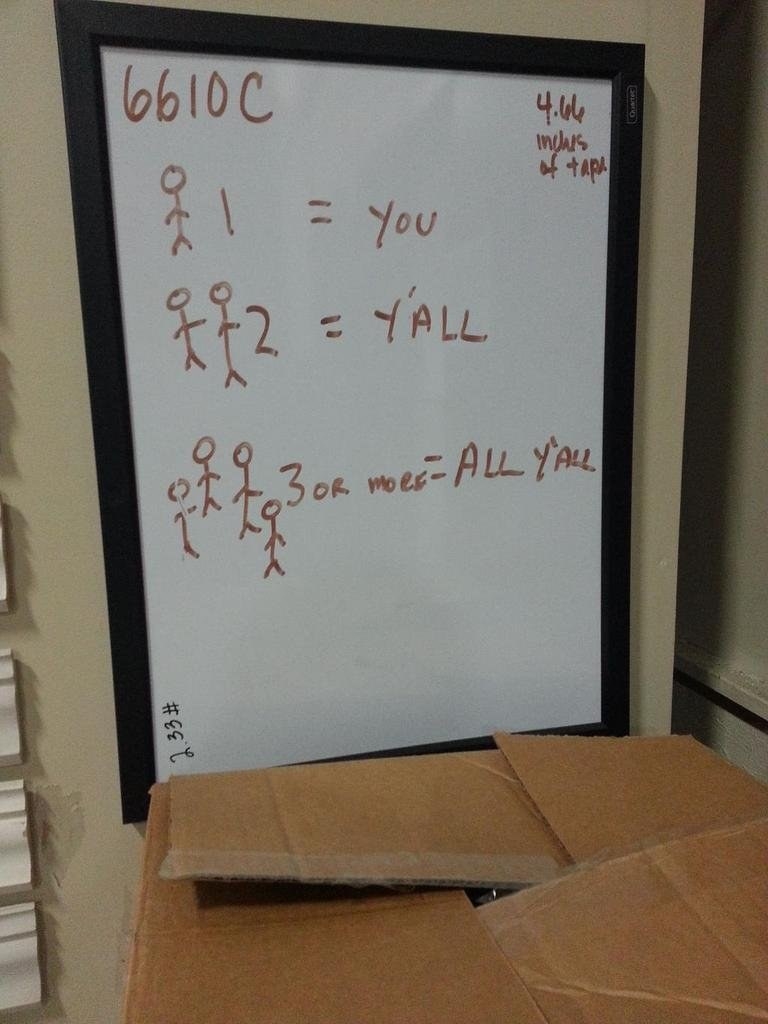 6610C
4.66
inches
of tape
Quartet
1 = YOU
2 = Y'ALL
3 OR MORE = ALL Y'ALL
2.33#